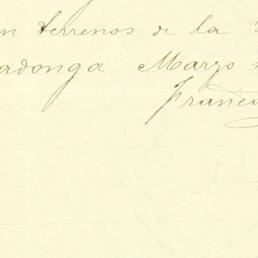 en terrenos de la
adonga Marzo
Franc